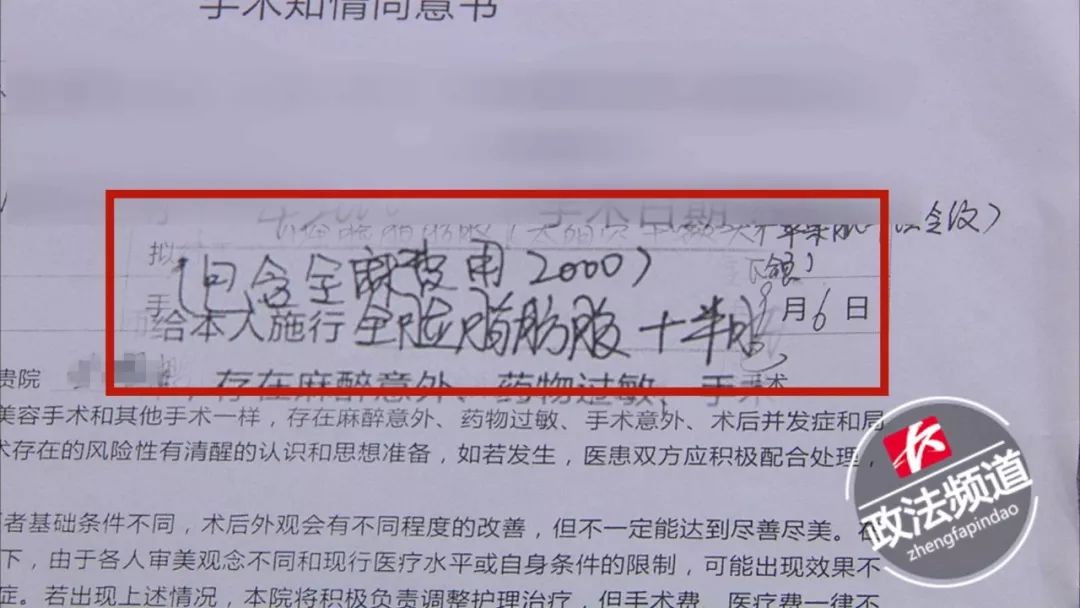 手术知情同意书
手术日期
苹果肌
拟
(包含全麻费用2000)
月6日
手
给本人施行全脸脂肪
贵院
，存在麻醉意外、药物过敏、手
术
美容手术和其他手术一样，存在麻醉意外、药物过敏、手术意外、术后并发症和局
术存在的风险性有清醒的认识和思想准备，如若发生，医患双方应积极配合处理，
者基础条件不同，术后外观会有不同程度的改善，但不一定能达到尽善尽美。在
下，由于各人审美观念不同和现行医疗水平或自身条件的限制，可能出现效果不
症。若出现上述情况，本院将积极负责调整护理治疗，但手术费、医疗费一律不
政法频道
zhengfapindao